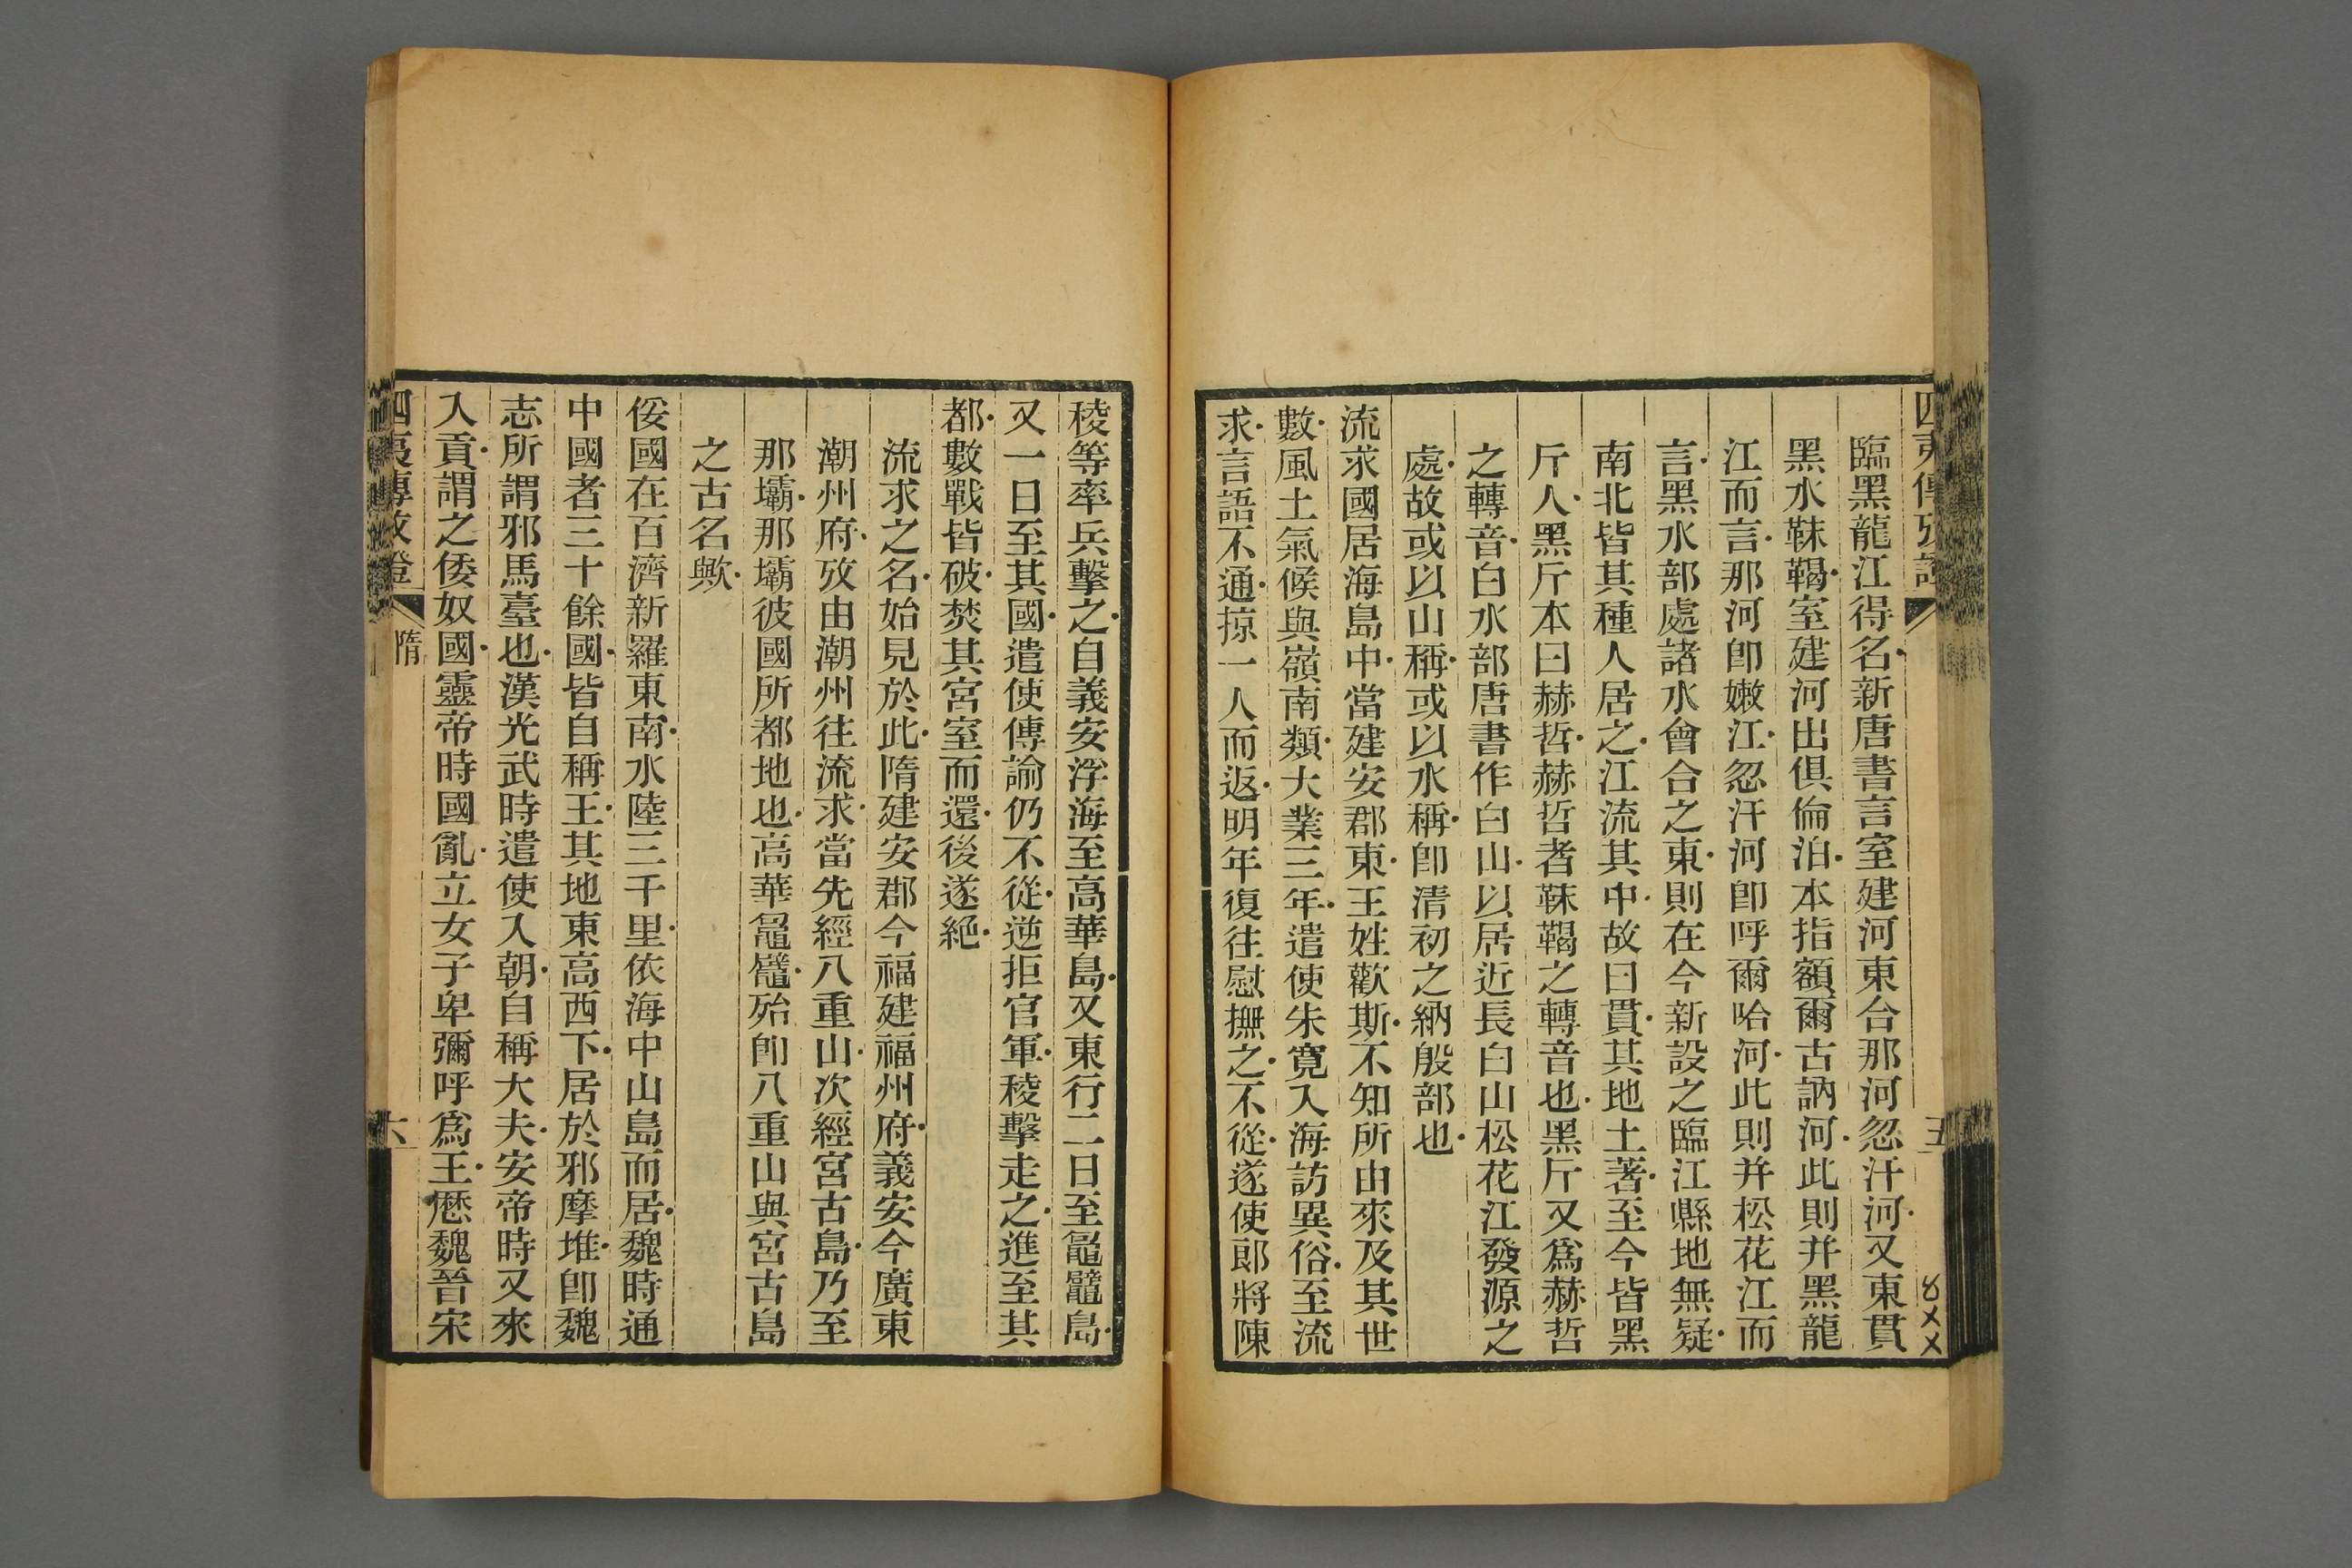 四夷傳攷證
五
臨黑龍江得名新唐書言室建河東合那河忽汗河河又東貫
黑水靺鞨室建河出俱倫泊本指額爾古訥河此則并黑龍
江而言那河卽嫩江忽汗河卽呼爾哈河此則并松花江而
言黑水部處諸水會合之東則在今新設之臨江縣地無疑
南北皆其種人居之江流其中故曰貫其地土著至今皆黑
斤人黑斤本曰赫哲赫哲者靺鞨之轉音也黑斤又爲赫哲
之轉音白水部唐書作白山以居近長白山松花江發源之
處故或以山稱或以水稱卽清初之納殷部也
流求國居海島中當建安郡東王姓歡斯不知所由來及其世
數風土氣候與嶺南類大業三年遣使朱寬入海訪異俗至流
求言語不通掠一人而返明年復往慰撫之不從遂使郞將陳
稜等率兵擊之自義安浮海至高華島又東行二日至鼊島
又一日至其國遣使傳諭仍不從逆拒官軍稜擊走之進至其
都數戰皆破焚其宮室而還後遂絕
流求之名始見於此隋建安郡今福建福州府義安今廣東
潮州府攷由潮州往流求當先經八重山次經宮古島乃至
那壩那壩彼國所都地也高華鼊殆卽八重山與宮古島
之古名歟
俀國在百濟新羅東南水陸三千里依海中山島而居魏時通
中國者三十餘國皆自稱王其地東高西下居於邪摩堆卽魏
志所謂邪馬臺也漢光武時遣使入朝自稱大夫安帝時又來
入貢謂之倭奴國靈帝時國亂立女子卑彌呼爲王歷魏晉宋
四夷傳攷證
隋
六